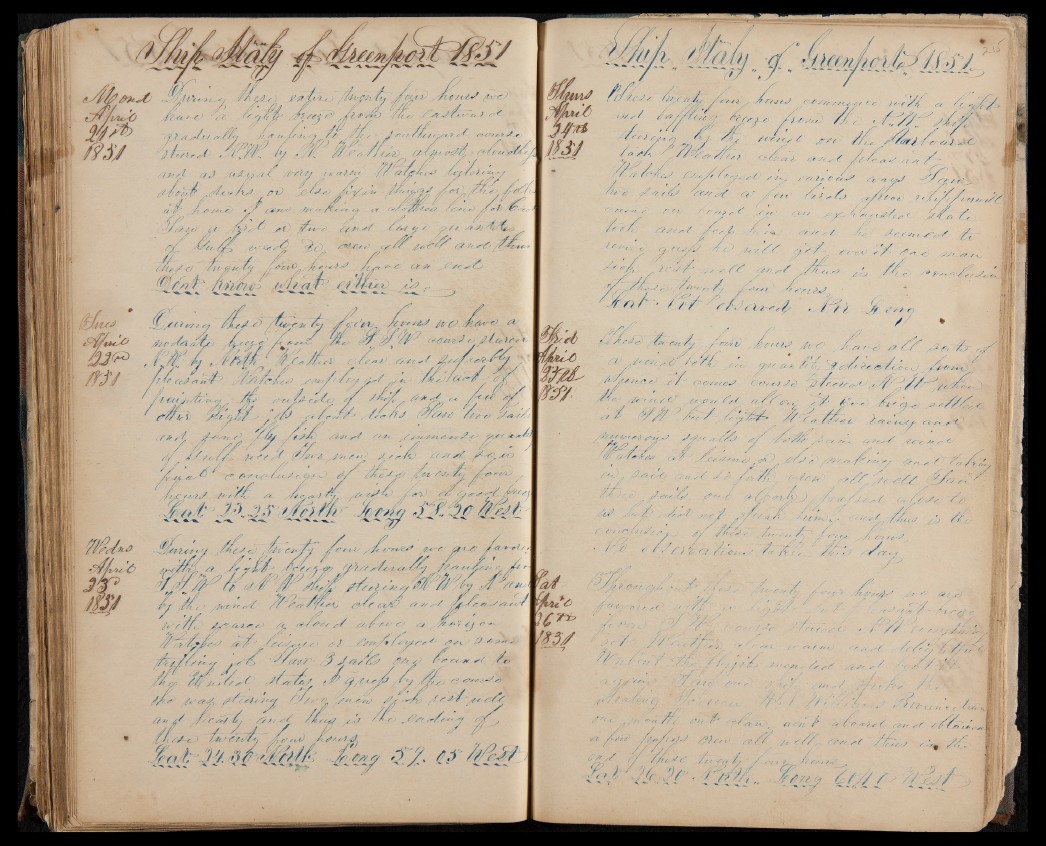 Ship Italy of Greenport 1851
Mond
April
21st
1851
During these entire twenty four hours we
have a light breeze from the eastward
gradually hauling to the southward course
steered N.W. by N. Weather almost cloudless
and as usual very warm Watches
about decks or else fixin things for the folks
at home I am making a clothes line for
Saw a bird or two and large quantities
of Gulf weed &c crew all well and thus
these twenty four hours have an end
Dont know what either is
Tues
April
22nd
1851
During these twenty four hours we have a
moderate breeze from the S.S.W course steered
N.W. by North Weather clear and superbly
pleasant Watches employed in the act of
painting the outside of ship and a few of
other slight jobs about decks Saw two sails
and some fly fish and an immense quantity
of gulf weed Two men sick and so is
final conclusion of these twenty four
hours with a hearty wish for a good breeze
Lat 23.25 North Long 58.20 West
Wedns
April
23d
1851
During these twenty four hours we are favored
with a light breeze gradually hauling from
S.S.W to N.W ship steering N W by N and
by the wind Weather clear and pleasant
with scarce a cloud above a horizon
Watches at leisure or employed on some
triffling job Saw 3 sails one bound to
the United states I guess by the course
she was steering Two men sick rest well
and hearty and thus is the ending of
these twenty four hours
Lat 24.30 North Long 59.05 West
Ship Italy of Greenport 1851
Thurs
April
24th
1851
These twenty four hours commence with a light
and baffling breeze from the N.W. ship
steering by the wind on the starboard
tack Weather clear and pleasant
Watches employed in various ways Seen
two sails and a few birds
came on board in an exhausted state
took and feed him and he seemed to
revive guess he will get over it one man
sick rest well and thus is the conclusion
of these twenty four hours
Lat Not observed Nor Long
Frid
April
25th
1851
These twenty four hours we have all sorts of
a wind both in quantity & direction from
whence it comes course steered N W when
the wind would allow it
at but light Weather rainy and
numerous squalls of both rain and wind
Watches at leisure or else making and taking
in sail and is fully crew all well Seen
three sails one of them passed close to
us but did not speak him and thus is the
conclusion of these twenty four hours
No observations taken this day
Sat
April
26th
1851
Throughout these twenty four hours we are
favored with a
from S W course steered N W
not Weather clear warm and delightful
again Seen one ship and spoke
one month out whaling went aboard and obtained
a few papers crew all well and thus is the
end of these twenty four hours
Lat 26.20 North Long West